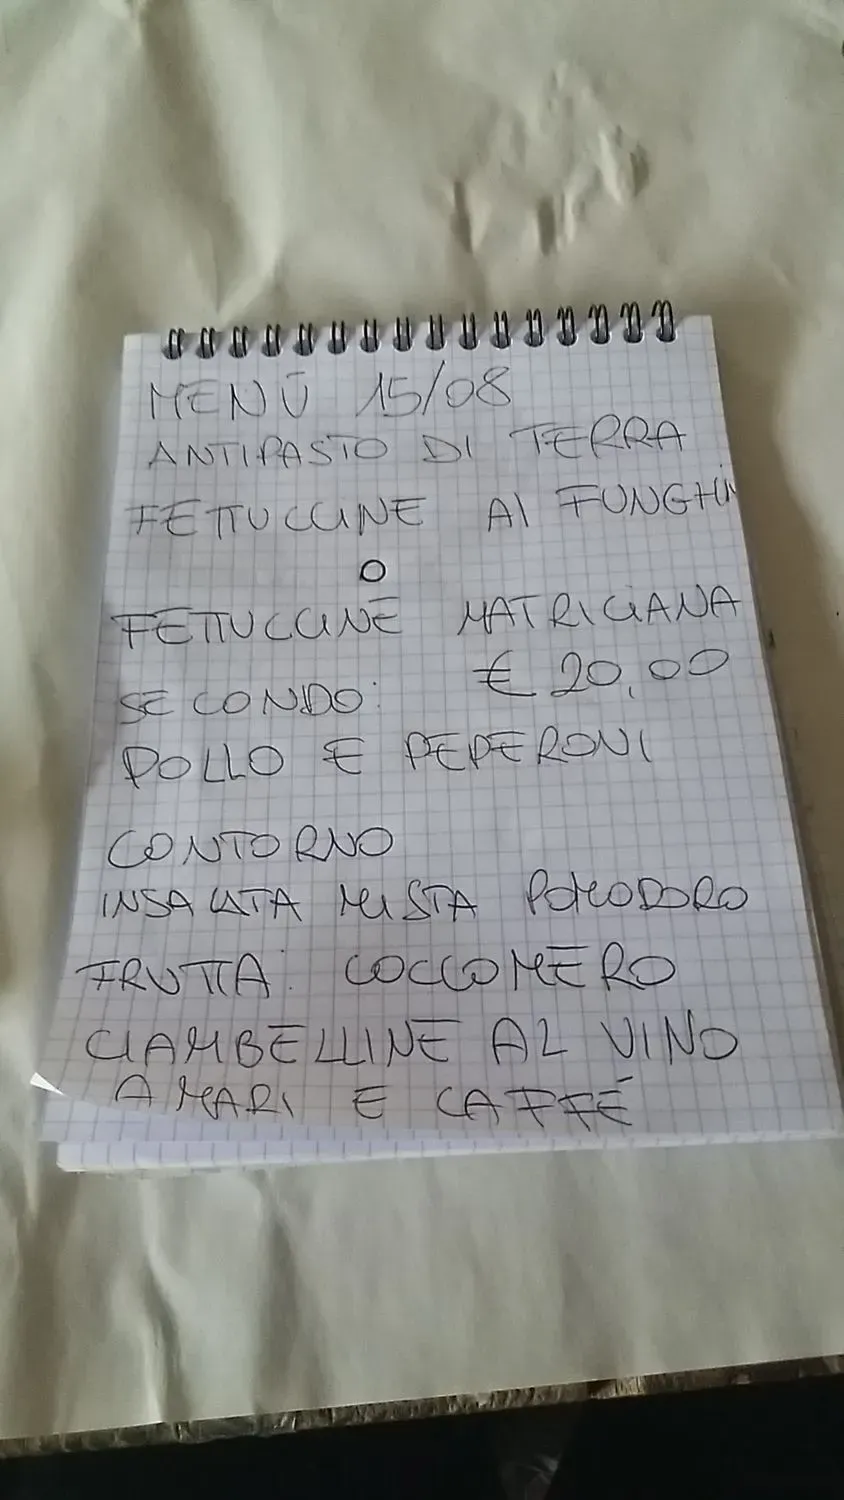 MENÙ 15/08
ANTIPASTO DI TERRA
FETTUCCINE AI FUNGHI
O
FETTUCCINE MATRICIANA
€ 20,00
SECONDO:
POLLO E PEPERONI
CONTORNO
INSALATA MISTA POMODORO
FRUTTA: COCCOMERO
CIAMBELLINE AL VINO
AMARI E CAFFÉ